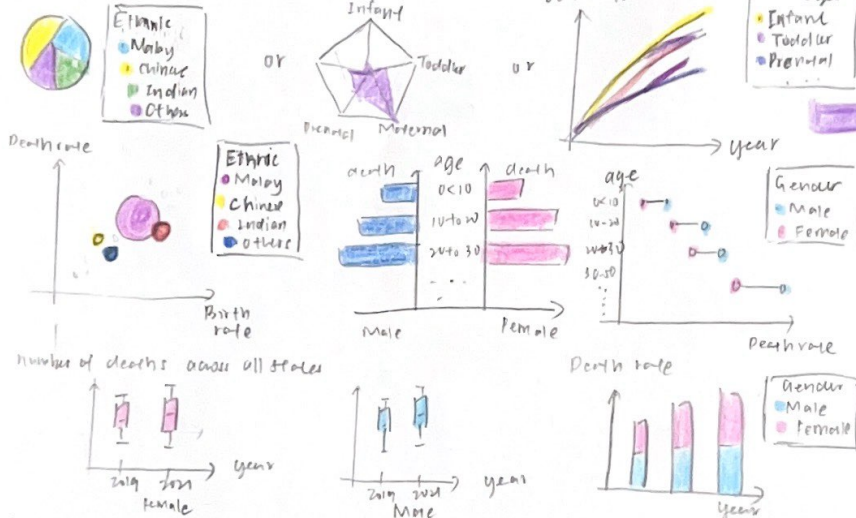 Ethnic
Malay
Chinese
Indian
Others
or
Infant
Toddler
Maternal
Prenatal
or
year
Infant
Toddler
Prenatal
...
Death rate
Birth rate
Ethnic
Malay
Chinese
Indian
Others
death
age
death
0<10
10 to 20
20 to 30
...
Male
Female
age
0<10
10-20
20 to 30
30-50
Death rate
Gender
Male
Female
Number of deaths across all states
2019
2021
year
Female
2019
2021
year
Male
Death rate
Year
Gender
Male
Female